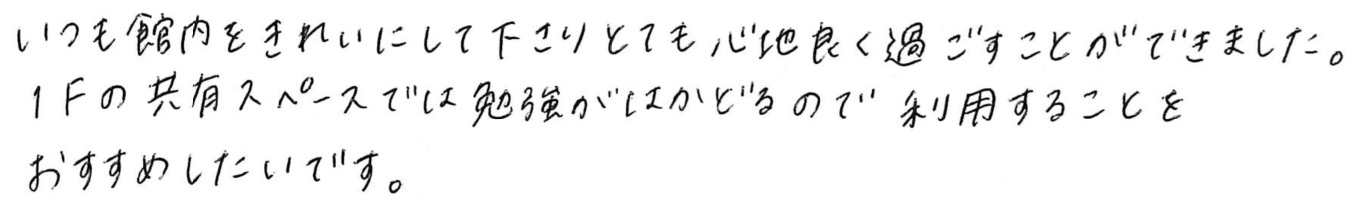 いつも館内をきれいにして下さりとても心地良く過ごすことができました。
1Fの共有スペースでは勉強がはかどるので利用することを
おすすめしたいです。